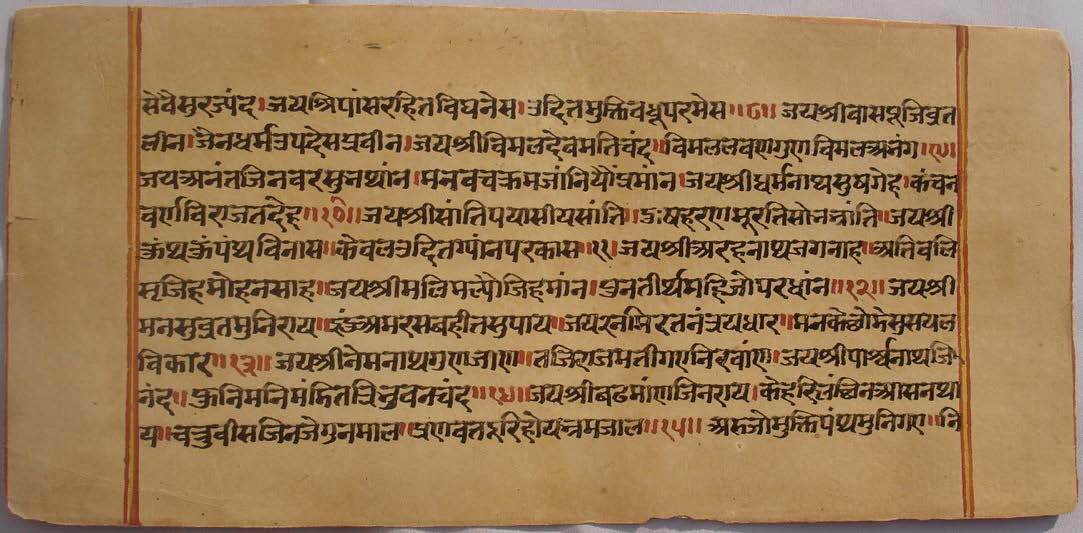 सेवैसुरज्पंद।जयश्रिपांसरहितविघनेस।उदितमुक्तिवधूपरमेस॥८॥जयश्रीवासपूजिव्रत
लीन।जैनधर्मउपदेसप्रवीन।जयश्रीविमलदेवमतिचंद।विमललवणगुणविमलअनंग॥९॥
जयअनंतजिनवरसुनथांन।मनवचक्रमजांनियौंप्रमांन।जयश्रीधर्मनाथसुषगेह।कंचन
वर्णविराजतदेह॥१०॥जयश्रीसांतिपयासीयसांति।दुःषहरणमूरतिसोजक्रांति।जयश्री
कुंथकुंपंथविनास।केवलउदितग्पांनपरकास॥११॥जयश्रीअरहनाथजगनाह।अतिबलि
सृजिहमोहनसाह।जयश्रीमलिमल्पौजिहमांन।पुनतीर्थमहिजोपरधांन॥१२॥जयश्री
मनसुव्रतमुनिराय।अमरसबहीतसुपाय।जयरनमिरतनंत्रयधार।मन
विकार॥१३॥जयश्रीनेमनाथगुणजाण।तजिराजमतीगएनिरवांण।जयश्रीपार्श्वनाथजि
नंद।फुनिमनिमंडितत्रिभुवनचंद॥१४॥जयश्रीबढमांणजिनराय।केहरिलंछिनआसनथा
य॥चउवीसजिनजैगुनमाल।प्रणवतहरिहोयभ्रमजाल॥१५॥अरुजोमुक्तिपंथमुनिगए॥नि